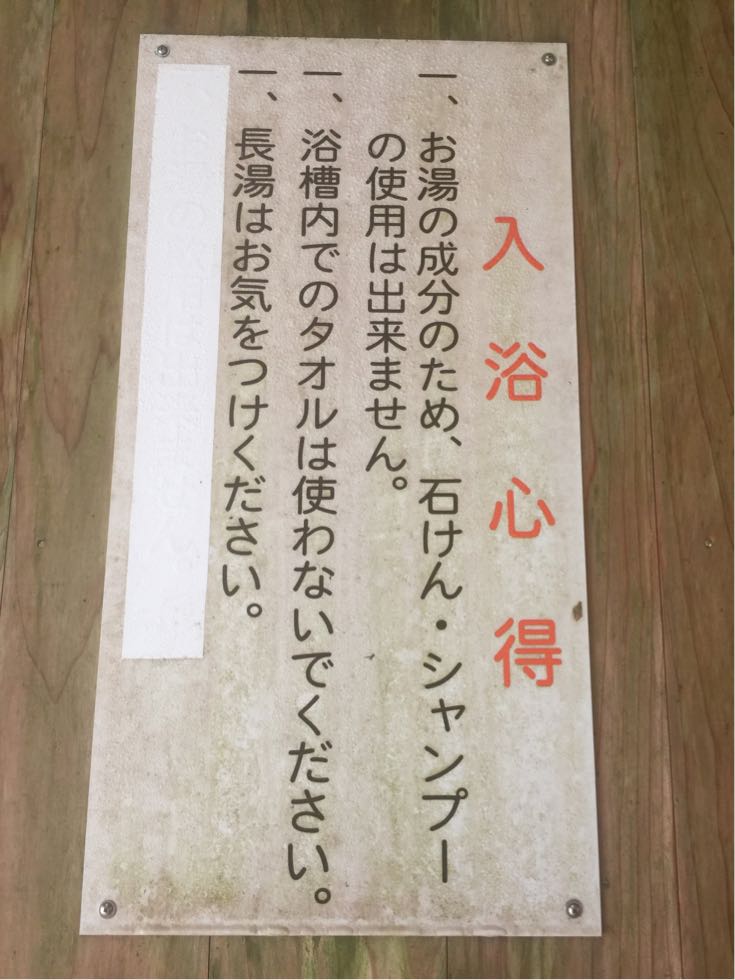 入浴心得
一、お湯の成分のため、石けん・シャンプー
の使用は出来ません。
一、浴槽内でのタオルは使わないでください。
一、長湯はお気をつけください。